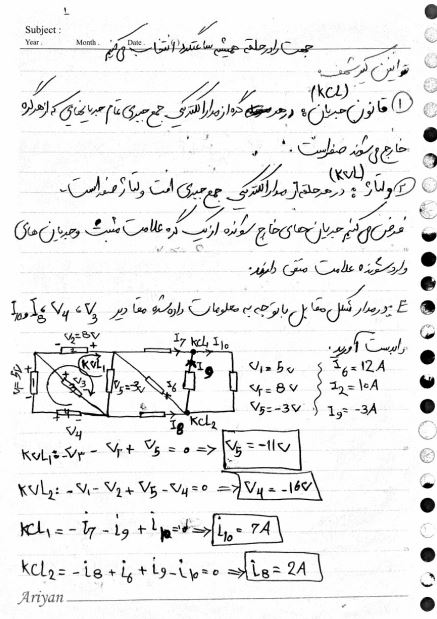 1
Subject :
Year . Month . Date .
جهت را در حلقه همیشه ساعتگرد انتخاب می‌کنیم
قوانین کیرشهف
(KCL)
① قانون جریان: در هر گره از مدار الکتریکی جمع جبری تمام جریانهایی که از هر گره
خارج می‌شوند صفر است.
(KVL)
② ولتاژ: در هر حلقه از مدار الکتریکی جمع جبری افت ولتاژ صفر است.
فرض می‌کنیم جریان‌های خارج شونده از یک گره علامت مثبت و جریان‌های
وارد شونده علامت منفی دارند.
E در مدار شکل مقابل با توجه به معلومات داده شده مقادیر I10 و I8 و V4 و V3
را بدست آورید.
V2=8V I7 KCL1 I10
V1=5V KVL1 V3 V5=-3V I6 I9
V4 I8 KCL2
V1=5V I6=12A
V2=8V I2=10A
V5=-3V I9=-3A
KVL1: -V3 - V2 + V5 = 0 => V5=-11V
KVL2: -V1 - V2 + V5 - V4 = 0 => V4=-16V
KCL1= -i7 - i9 + i10=0 => i10=7A
KCL2= -i8 + i6 + i9 - i10 = 0 => i8=2A
Ariyan